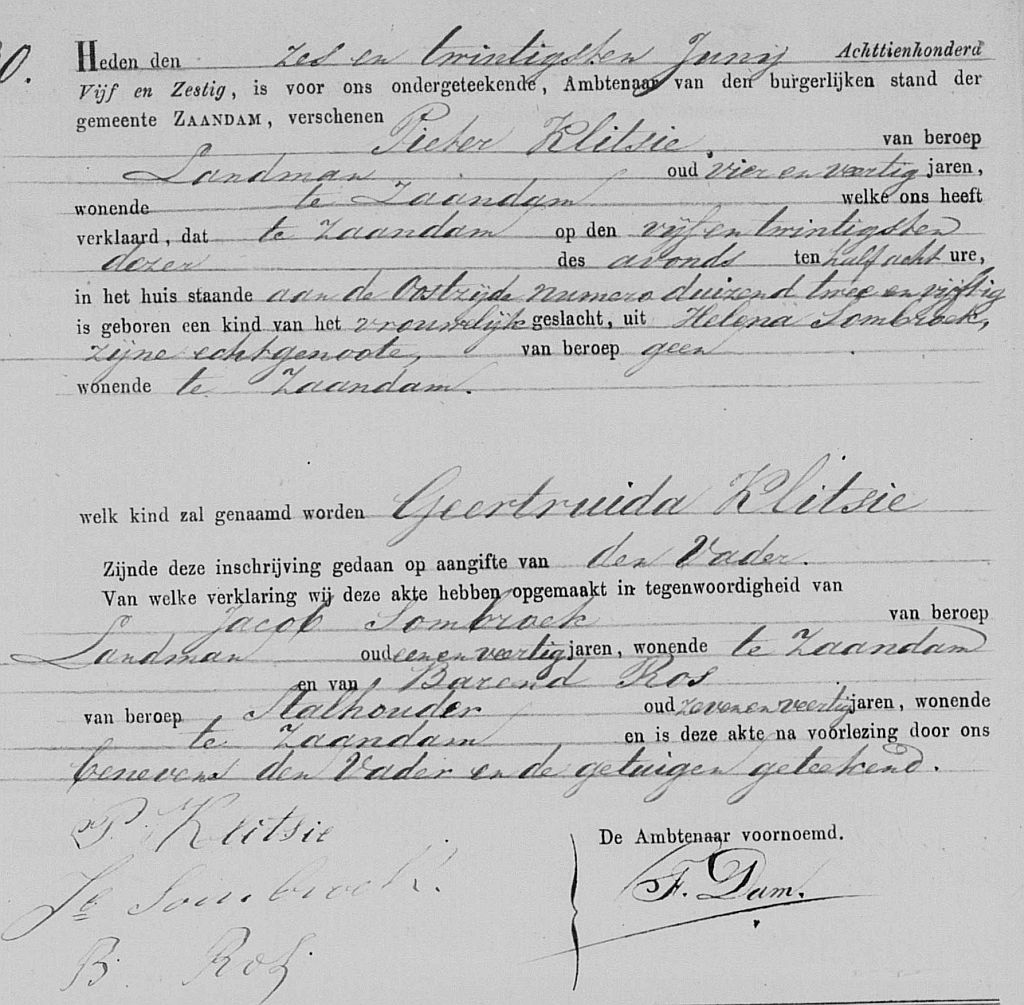 0.
Heden den zes en twintigsten Junij Achttienhonderd
Vijf en Zestig, is voor ons ondergeteekende, Ambtenaar van den burgerlijken stand der
gemeente ZAANDAM, verschenen
Pieter Klitsie, van beroep
Landman oud vier en veertig jaren,
wonende te Zaandam welke ons heeft
verklaard, dat te Zaandam op den vijf en twintigsten
dezer des avonds ten half acht ure,
in het huis staande aan de Oostzijde numero duizend twee en vijftig
is geboren een kind van het vrouwelijk geslacht, uit Helena Sombroek,
zijne echtgenoote, van beroep geen
wonende te Zaandam.
welk kind zal genaamd worden Geertruida Klitsie
Zijnde deze inschrijving gedaan op aangifte van den Vader.
Van welke verklaring wij deze akte hebben opgemaakt in tegenwoordigheid van
Jacob Sombroek van beroep
Landman oud een en veertig jaren, wonende te Zaandam
en van Barend Ros
van beroep Stalhouder oud zeven en veertig jaren, wonende
te Zaandam en is deze akte na voorlezing door ons
benevens den Vader en de getuigen geteekend.
P. Klitsie
De Ambtenaar voornoemd.
Jb Sombroek.
F. Dam.
B. Ros